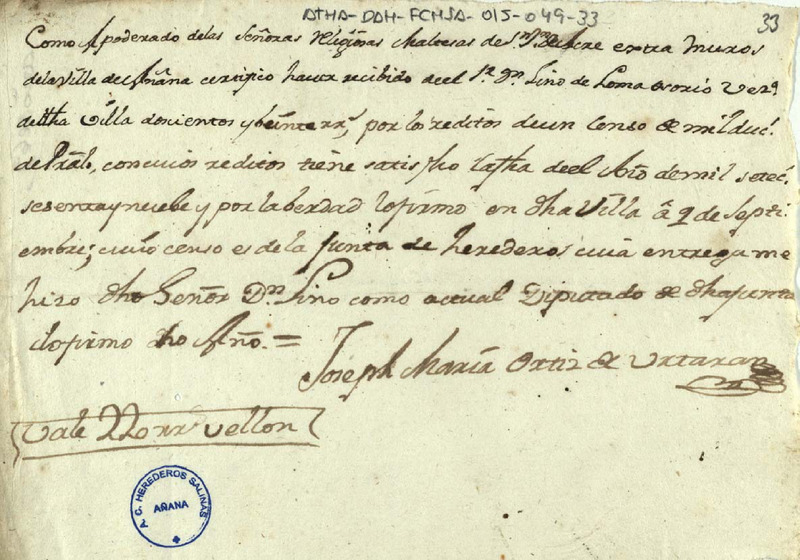 ATHA-DAH-FCHSA-015-049-33
33
Como Apoderado delas Señoras Religiosas Maltesas de Sn Jn de Acre extra muros
dela Villa de Añana certifico haver recibido deel Sr. Dn Lino de Loma osorio Vezº
de dha Villa doscientos y beinte rrs, por los reditos de un Censo de mil duc.
de Pral, con cuios reditos tiene satisfho la fha deel Año de mil setec.
sesenta y nuebe y por la berdad lo firmo en dha Villa â 9 de Septi-
embre; cuio censo es de la Junta de herederos cuia entrega me
hizo dho Señor Dn Lino como actual Diputado de dha junta
lo firmo dho Año. =
Joseph María Ortiz de Urtaran
Vale 220 rrs vellon
C. HEREDEROS SALINAS
AÑANA